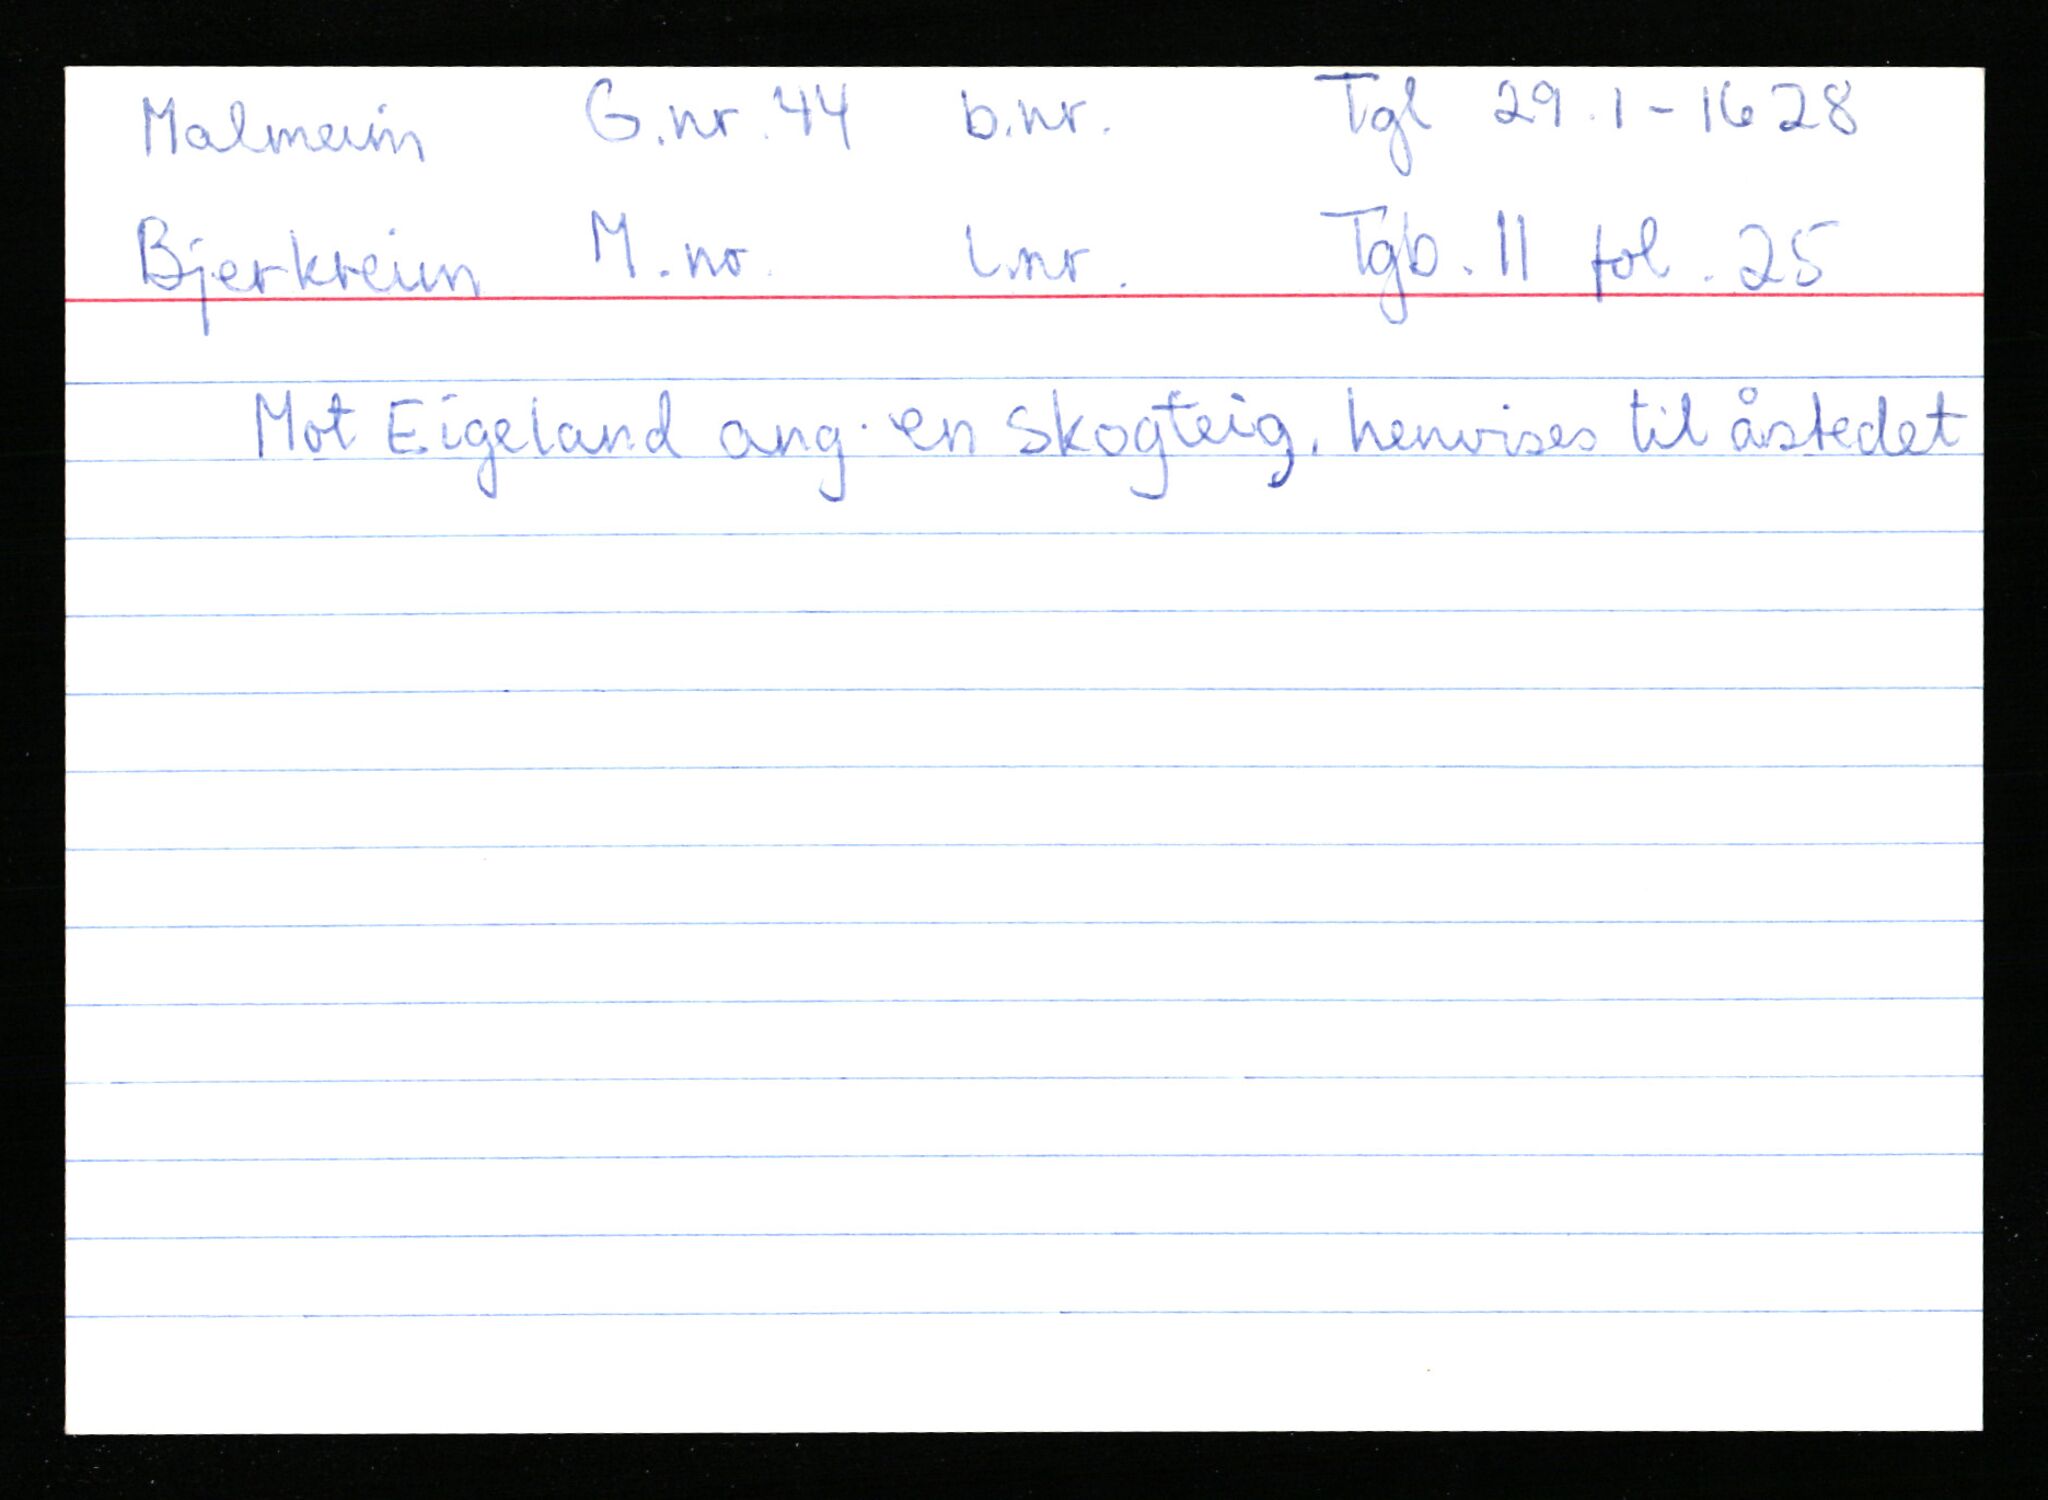 Malmeim G.nr. 44 b.nr. Tgl 29.1-1628
Bjerkreim M.nr. l.nr. Tgb. 11 fol. 25
Mot Eigeland ang. en skogteig, henvises til åstedet